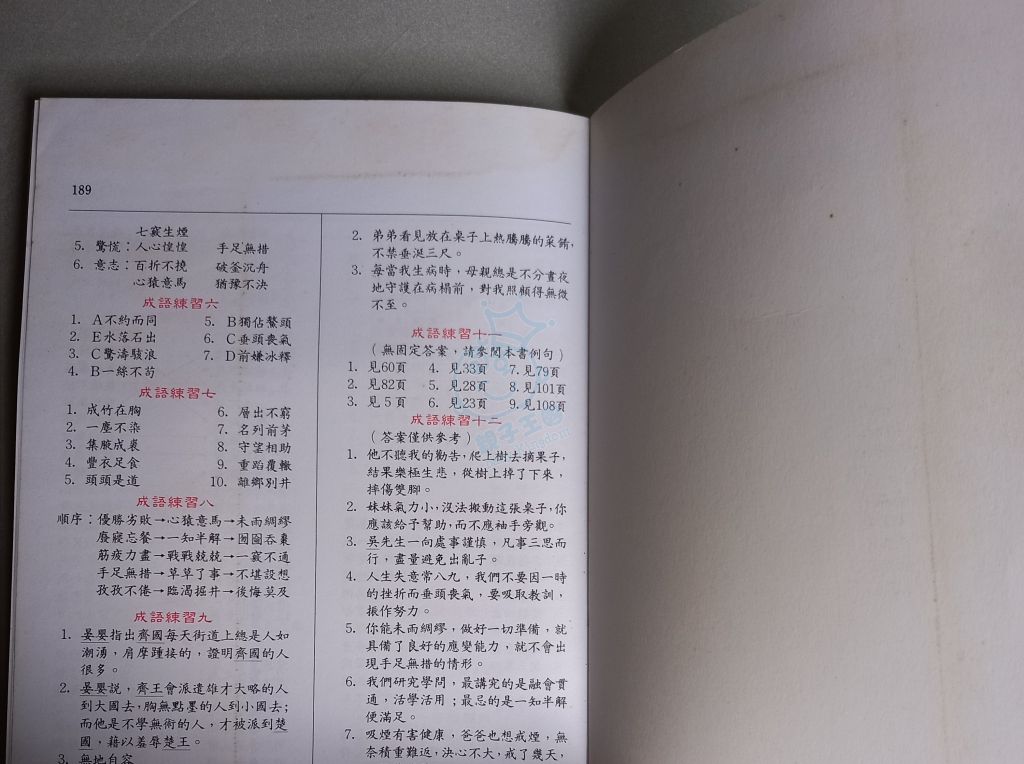 189
七竅生煙
5. 驚慌：人心惶惶 手足無措
6. 意志：百折不撓 破釜沉舟
心猿意馬 猶豫不決
成語練習六
1. A不約而同 5. B獨佔鰲頭
2. E水落石出 6. C垂頭喪氣
3. C驚濤駭浪 7. D前嫌冰釋
4. B一絲不苟
成語練習七
1. 成竹在胸 6. 層出不窮
2. 一塵不染 7. 名列前茅
3. 集腋成裘 8. 守望相助
4. 豐衣足食 9. 重蹈覆轍
5. 頭頭是道 10. 離鄉別井
成語練習八
順序：優勝劣敗→心猿意馬→未雨綢繆
廢寢忘餐→一知半解→囫圇吞棗
筋疲力盡→戰戰兢兢→一竅不通
手足無措→草草了事→不堪設想
孜孜不倦→臨渴掘井→後悔莫及
成語練習九
1. 晏嬰指出齊國每天街道上總是人如
潮湧，肩摩踵接的，證明齊國的人
很多。
2. 晏嬰說，齊王會派遣雄才大略的人
到大國去，胸無點墨的人到小國去；
而他是不學無術的人，才被派到楚
國，藉以羞辱楚王。
3. 無地自容
2. 弟弟看見放在桌子上熱騰騰的菜餚，
不禁垂涎三尺。
3. 每當我生病時，母親總是不分晝夜
地守護在病榻前，對我照顧得無微
不至。
成語練習十一
（無固定答案，請參閱本書例句）
1. 見60頁 4. 見33頁 7. 見79頁
2. 見82頁 5. 見28頁 8. 見101頁
3. 見5頁 6. 見23頁 9. 見108頁
成語練習十二
（答案僅供參考）
1. 他不聽我的勸告，爬上樹去摘果子，
結果樂極生悲，從樹上掉了下來，
摔傷雙腳。
2. 妹妹氣力小，沒法搬動這張桌子，你
應該給予幫助，而不應袖手旁觀。
3. 吳先生一向處事謹慎，凡事三思而
行，盡量避免出亂子。
4. 人生失意常八九，我們不要因一時
的挫折而垂頭喪氣，要吸取教訓，
振作努力。
5. 你能未雨綢繆，做好一切準備，就
具備了良好的應變能力，就不會出
現手足無措的情形。
6. 我們研究學問，最講究的是融會貫
通，活學活用；最忌的是一知半解
便滿足。
7. 吸煙有害健康，爸爸也想戒煙，無
奈積重難返，決心不大，戒了幾天，